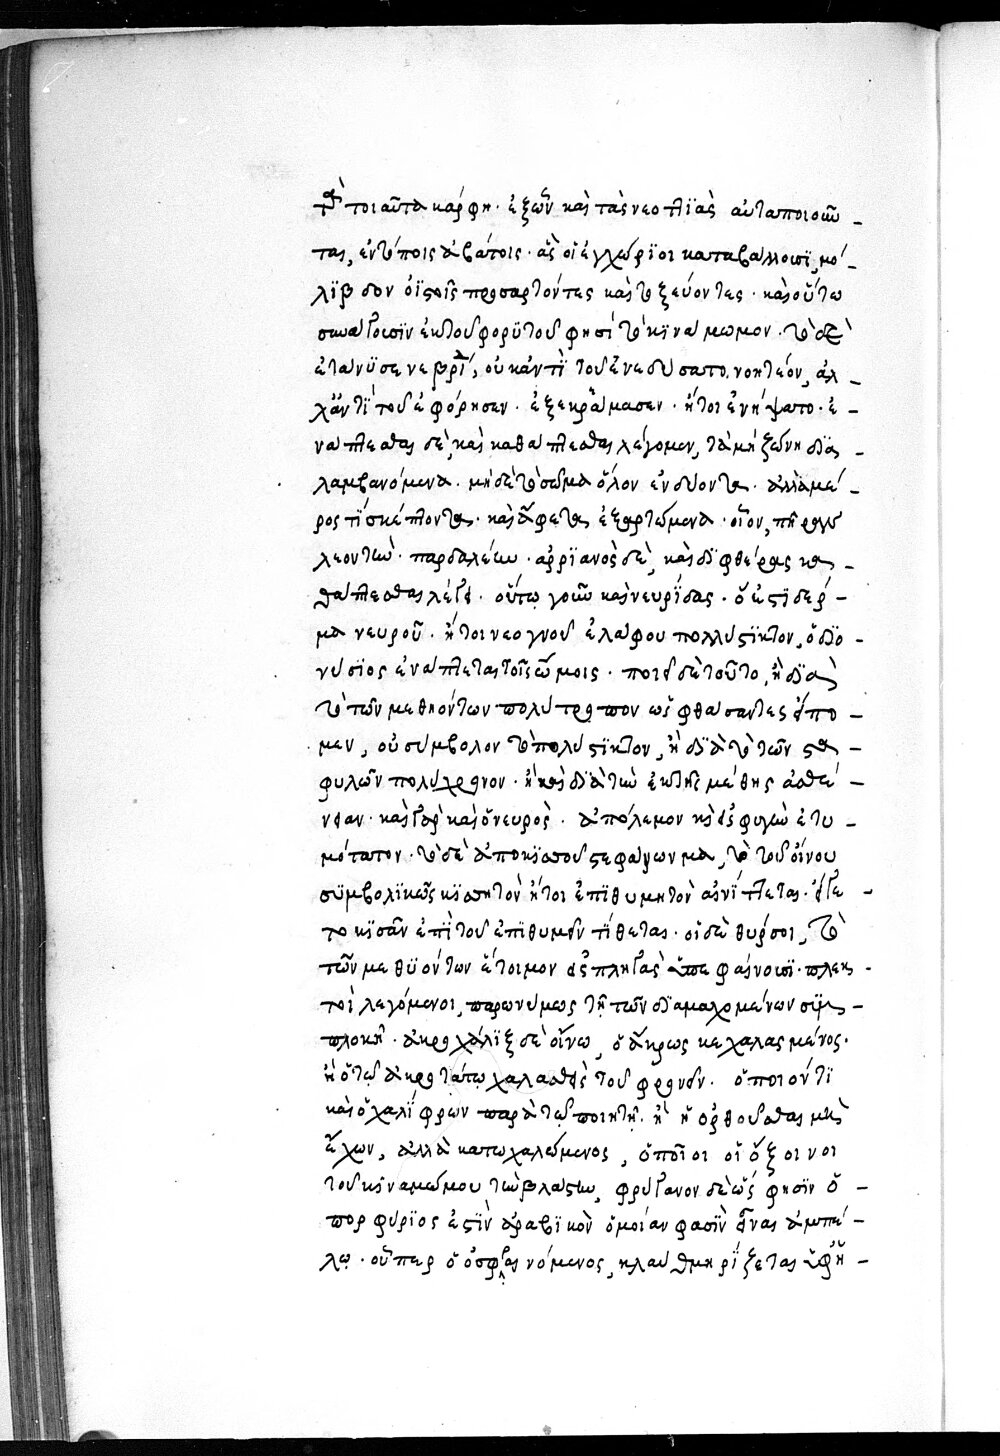 τὰ τοιαῦτα κάρφη· ἐξ ὧν καὶ τὰς νεοττιὰς αὐτὰ ποιοῦν
τας, ἐν τόποις ἀβάτοις· ἃς οἱ ἐγχώριοι καταβάλλουσι, μό
λιβδον ὀϊστοῖς προσαρτῶντες καὶ τοξεύοντες· καὶ οὕτω
συνάγουσιν ἐκ τοῦ φορυτοῦ φησὶ τὸ κινάμωμον· τὸ δὲ
ἐτανύσε νεβρί, οὐκ ἀντὶ τοῦ ἐνεδύσατο νοητέον, ἀλ
λ' ἀντὶ τοῦ ἐφόρησεν· ἐξεκράμασεν· ἤτοι ἐνήψατο· ἐ
νάπτεσθαι δὲ, καὶ καθάπτεσθαι λέγομεν, τὰ μὴ ζώνη δια
λαμβανόμενα· μηδὲ τὸ σῶμα ὅλον ἐνδύοντα· ἀλλὰ μέ
ρος τὶ σκέποντα· καὶ ἄφετα ἐξαρτώμενα· οἷον, πήραν
λεοντῶν· παρδαλέων· ἀρριανὸς δὲ, καὶ διφθέρας κα
θάπτεσθαι λέγει· οὕτω γοῦν καὶ νευρίδας· ὅ ἐστι δέρ
μα νευροῦ· ἤτοι νεογνοῦ ἐλάφου πολυστίκτον, ὁ διο
νύσιος ἐνάπτεται τοῖς ὤμοις· ποιεῖ δὲ τοῦτο, ἢ διὰ
τὸ τῶν μεθυόντων πολύτροπον ὡς φθάσαντες εἴπο
μεν, οὗ σύμβολον τὸ πολύστικτον, ἢ διὰ τὸ τῶν στα
φυλῶν πολύχρονον· ἢ καὶ διὰ τὴν ἐκ τῆς μέθης ἀσθέ
νειαν· καὶ γὰρ καὶ ὁ νευρὸς· ἀπόλεμον καὶ εἰς φυγὴν ἑτοι
μότατον· τὸ δὲ ἀπὸ κισσοῦ στεφάνωμα, τὸ τοῦ οἴνου
συμβολικῶς κισσητὸν ἤτοι ἐπιθυμητὸν αἰνίττεται· εἴγε
τὸ κισσᾶν ἐπὶ τοῦ ἐπιθυμεῖν τίθεται· οἱ δὲ θύρσοι, τὸ
τῶν μεθυόντων ἕτοιμον εἰς πληγὰς ὑπεμφαίνουσι· πλεκ
τοὶ λεγόμενοι, παρωνύμως τῇ τῶν διαμαχομένων συμ
πλοκῇ· ἀκροχάλιξ δὲ οἴνω, ὁ ἄκρως κεχαλασμένος·
ἢ ὁ τῷ ἀκροτάτῳ χαλασθεὶς τοῦ φρονεῖν· ὁποῖόν τι
καὶ ὁ χαλίφρων παρὰ τῷ ποιητῇ· ἢ ἢ ὀρθοῦσθαι μὴ
ἔχων, ἀλλὰ κάτω χαλώμενος, ὁποῖοι οἱ ἔξοινοι
τοῦ κιναμώμου τῶν βλαστῶν, φρύγανον δὲ ὥς φησιν ὁ
πορφύριος ἐστὶν ἀραβικὸν ὁμοίαν φασὶν εἶναι ἀμπέ
λῳ· οὗπερ ὁ ὀσφραινόμενος, κλαυθμηρίζεται ὑφ' ἡ